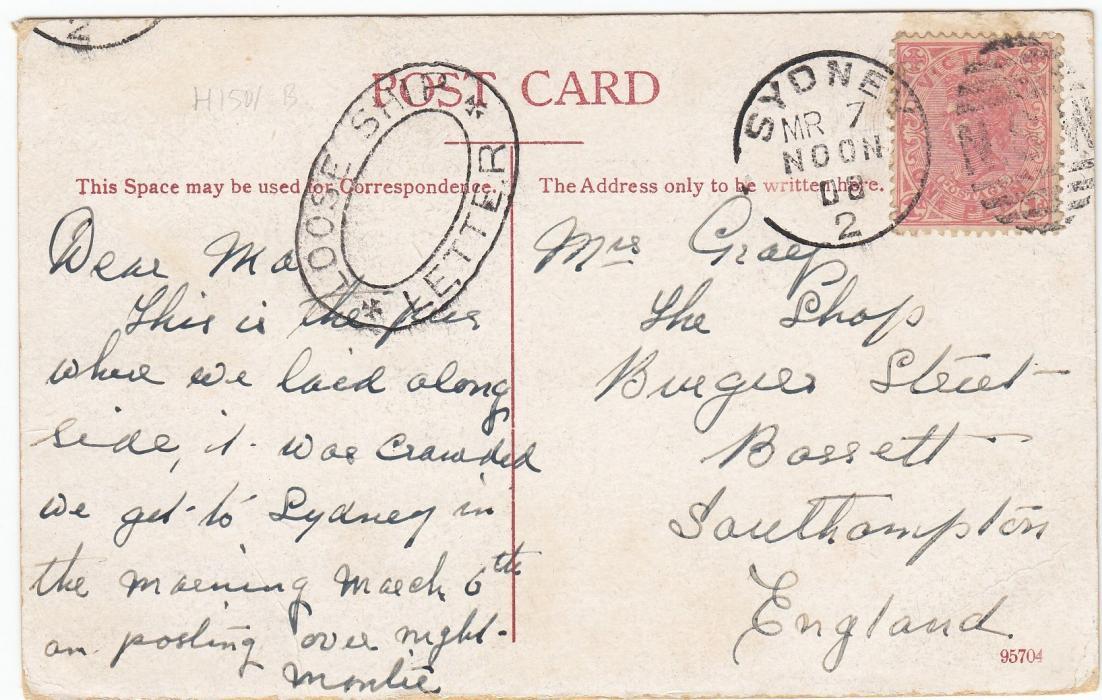 H1501 B
POST CARD
LOOSE SHIP
LETTER
SYDNEY
MR 7
NOON
08
2
VICTORIA
This Space may be used for Correspondence.
The Address only to be written here.
Dear Ma
This is the pier
where we laid along
side, it was crowded
we get to Sydney in
the morning March 6th
am posting over night.
Montie
Mrs Gray
The Shop
Burgess Street
Bassett
Southampton
England
95704